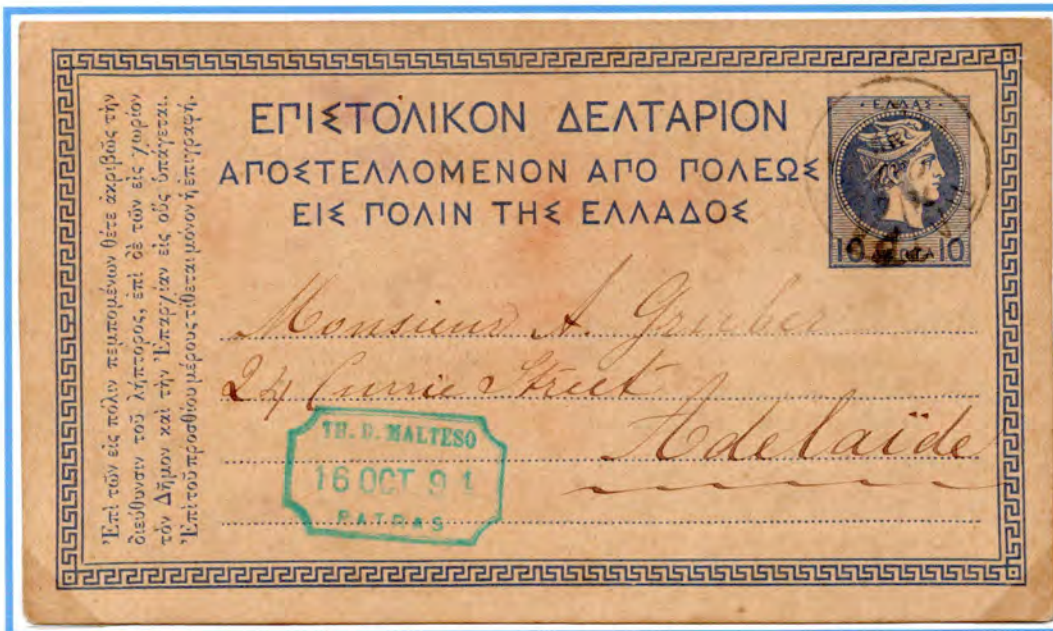 Ἐπὶ τῶν εἰς πόλιν πεμπομένων θέτε ἀκριβῶς τὴν
διεύθυνσιν τοῦ λήπτορος, ἐπὶ δὲ τῶν εἰς χωρίον
τὸν Δῆμον καὶ τὴν Ἐπαρχίαν εἰς οὓς ὑπάγεται.
Ἐπὶ τοῦ προσθίου μέρους τίθεται μόνον ἡ ἐπιγραφή.
ΕΠΙΣΤΟΛΙΚΟΝ ΔΕΛΤΑΡΙΟΝ
ΑΠΟΣΤΕΛΛΟΜΕΝΟΝ ΑΠΟ ΠΟΛΕΩΣ
ΕΙΣ ΠΟΛΙΝ ΤΗΣ ΕΛΛΑΔΟΣ
ΕΛΛΑΣ
10 ΛΕΠΤΑ 10
Monsieur A. Gruber
24 Currie Street
Adelaïde
TH. D. MALTESO
16 OCT 91
PATRAS